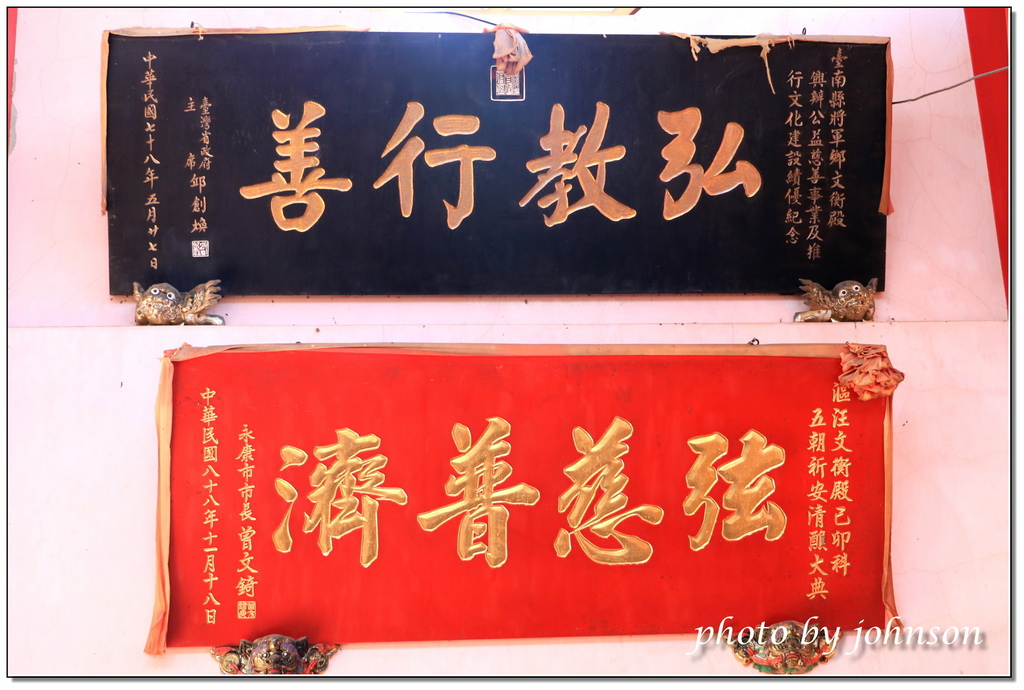 臺南縣將軍鄉文衡殿
興辦公益慈善事業及推
行文化建設績優紀念
弘教行善
臺灣省政府
主席 邱創煥
中華民國七十八年五月廿七日
漚汪文衡殿己卯科
五朝祈安清醮大典
弦慈普濟
永康市市長曾文錡
中華民國八十八年十一月十八日
photo by johnson